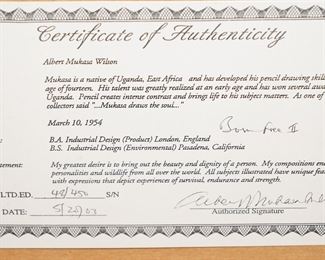 Certificate of Authenticity
Albert Mukasa Wilson
Mukasa is a native of Uganda, East Africa and has developed his pencil drawing skill
age of fourteen. His talent was greatly realized at an early age and has won several awa
Uganda. Pencil creates intense contrast and brings life to his subject matters. As one of
collectors said "...Mukasa draws the soul..."
March 10, 1954
Born Free II
B.A. Industrial Design (Product) London, England
B.S. Industrial Design (Environmental) Pasadena, California
tement: My greatest desire is to bring out the beauty and dignity of a person. My compositions enc
personalities and wildlife from all over the world. All subjects illustrated have unique fea
with expressions that depict experiences of survival, endurance and strength.
LTD.ED. 48/450 S/N
DATE:
Authorized Signature